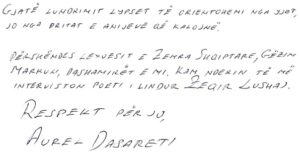 GJATË LUNDRIMIT LYPSET TË ORIENTOHEMI NGA YJET,
JO NGA DRITAT E ANIJEVE QË KALOJNË
PËRSHËNDES LEXUESIT E ZEMRA SHQIPTARE, GËZIM
MARKUN, DASHAMIRËT E MI. KAM NDERIN TË MË
INTERVISTON POETI I LINDUR ZEQIR LUSHAJ.
RESPEKT PËR JU,
AUREL DASARETI